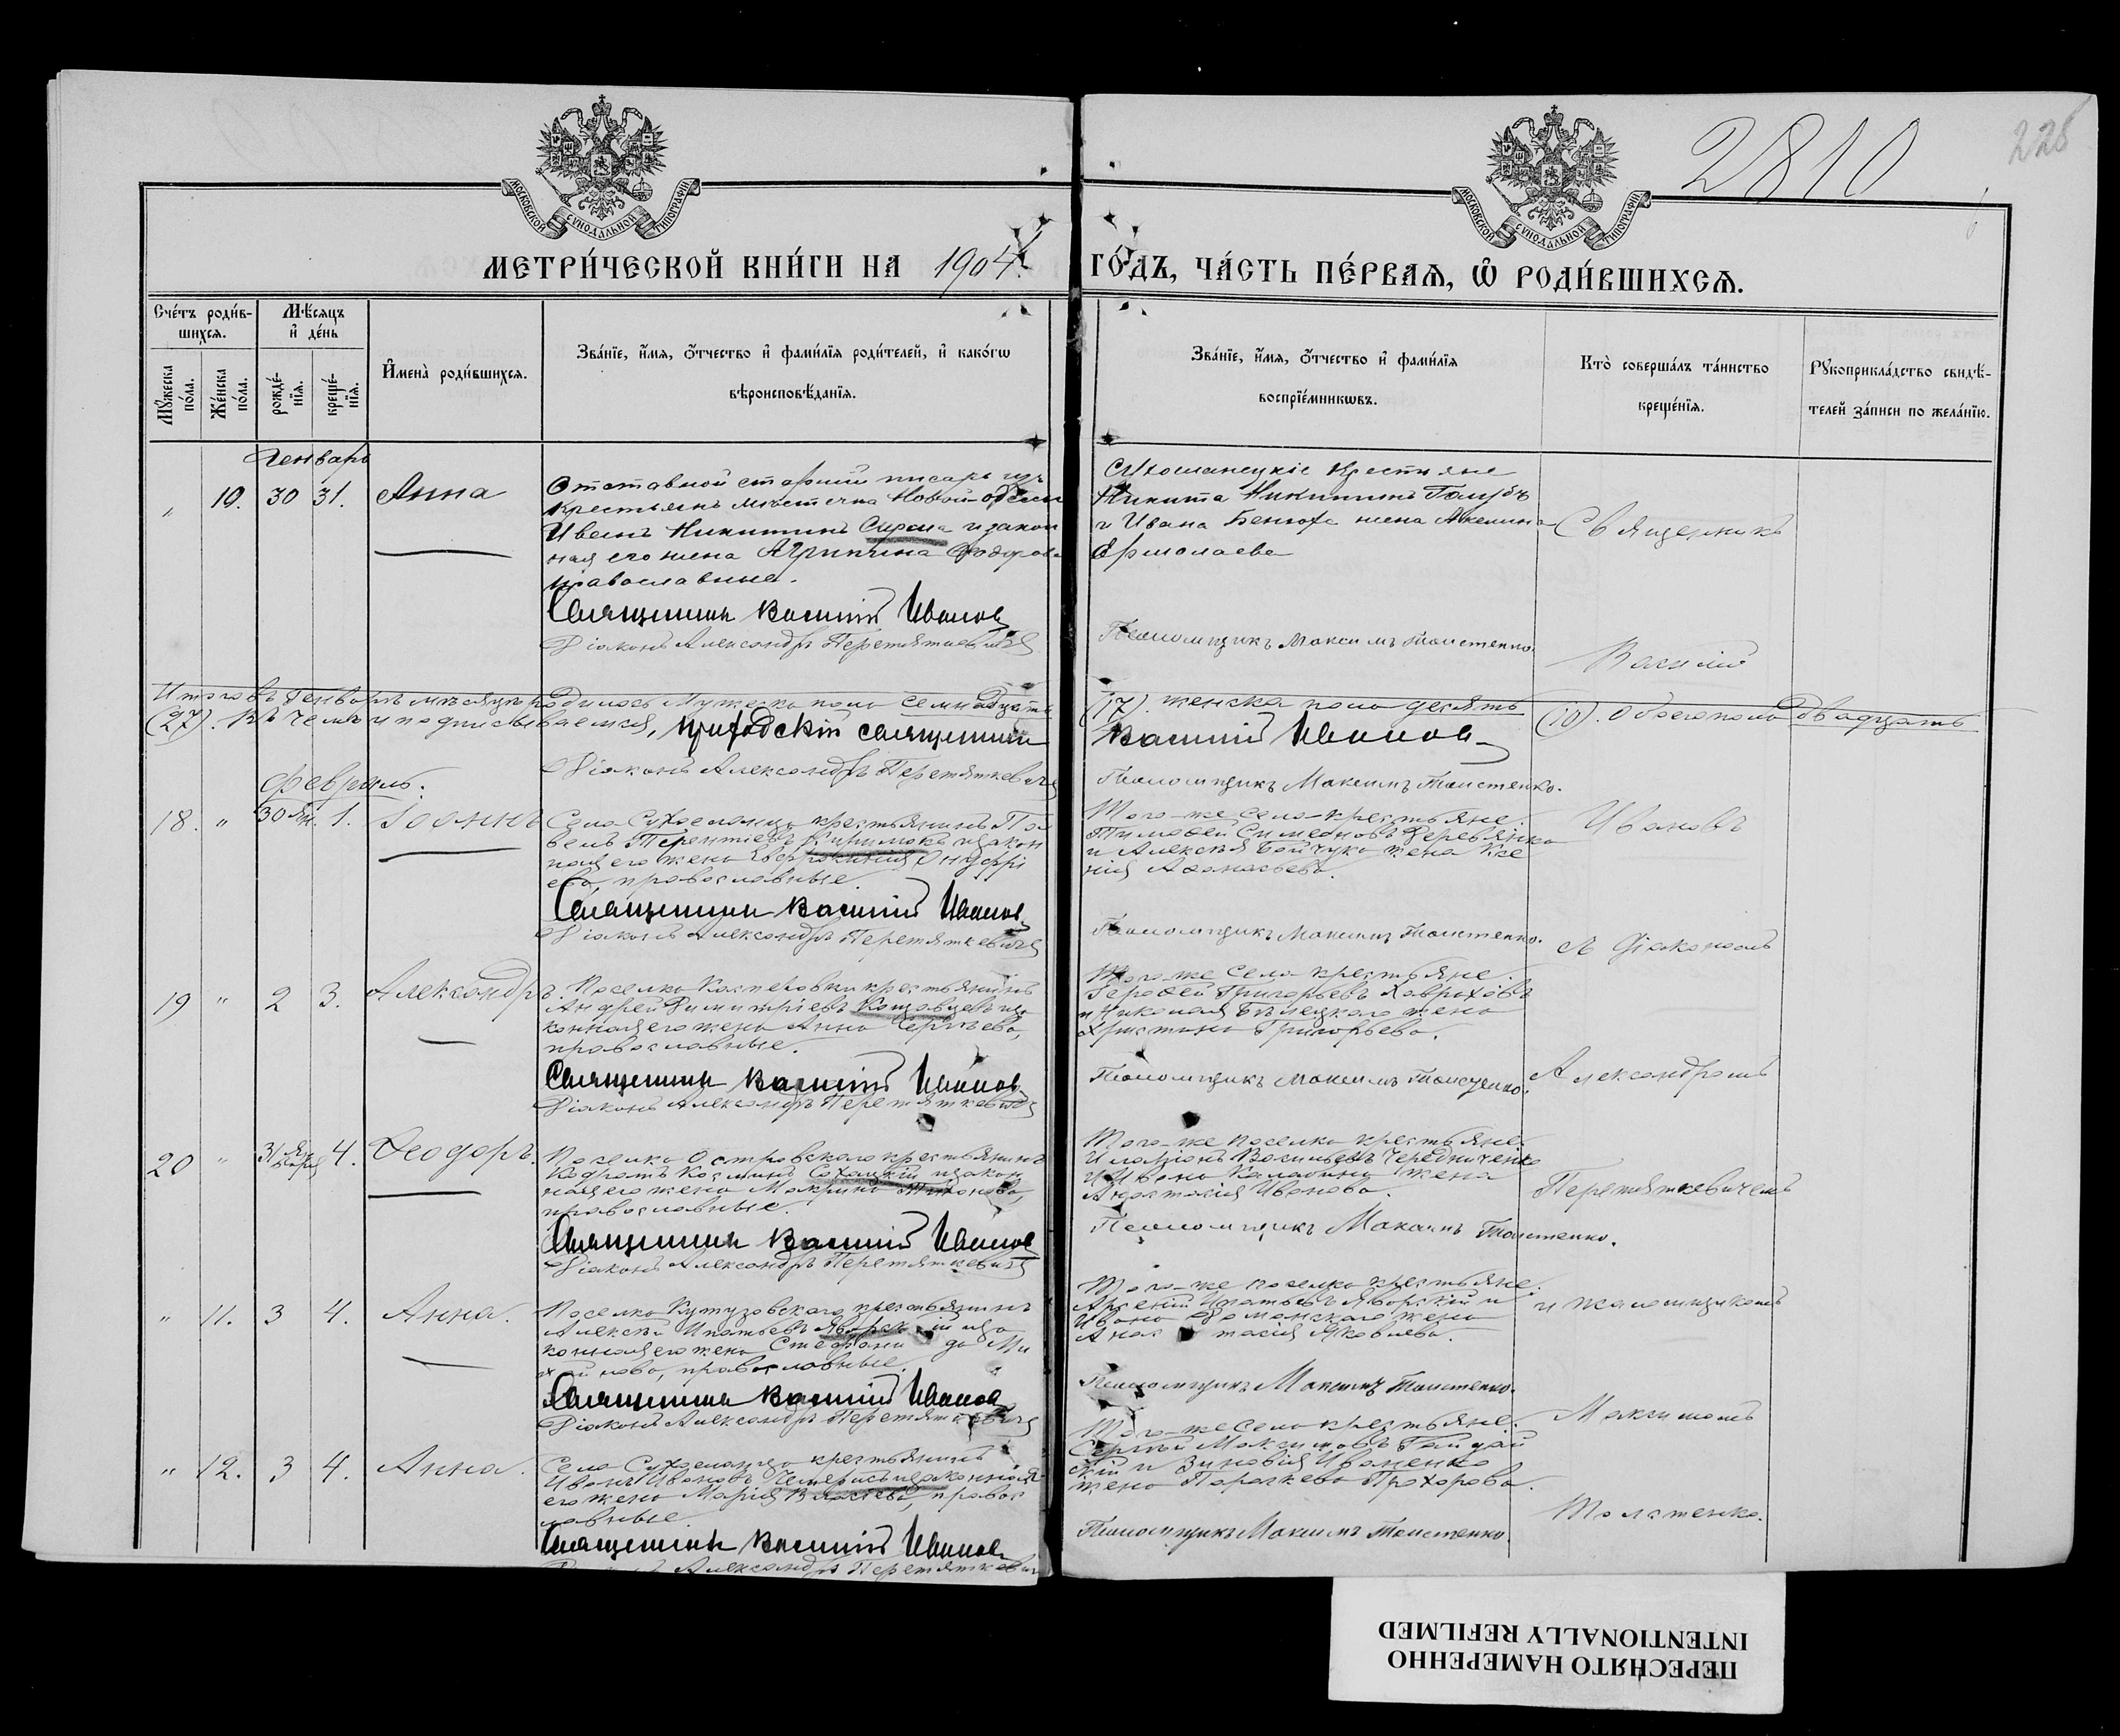 2810
228
МОСКОВСКОЙ СѴНОДАЛЬНОЙ ТИПОГРАФІИ
МОСКОВСКОЙ СѴНОДАЛЬНОЙ ТИПОГРАФІИ
МЕТРИ́ЧЕСКОЙ КНИ́ГИ НА 1904 ГО́ДЪ, ЧА́СТЬ ПЕ́РВАѦ, Ѡ РОДИ́ВШИХСѦ.
Сче́тъ роди́в-
шихся.
Мѣ́сяцъ
и҆ де́нь
Мꙋ́жеска по́ла.
Же́нска по́ла.
рожде́-
нїя.
креще́-
нїя.
И҆мена̀ роди́вшихся.
Зва́нїе, и҆́мя, ѻ҆́тчество и҆ фами́лїя роди́телей, и҆ како́гѡ
вѣроисповѣ́данїя.
Зва́нїе, и҆́мя, ѻ҆́тчество и҆ фами́лїя
воспрїе́мникѡвъ.
Кто̀ соверша́лъ та́инство
креще́нїя.
Рꙋкоприкла́дство свидѣ́-
телей за́писи по жела́нїю.
Генварь
„ 10. 30 31. Анна
Отставной старший писарь изъ
крестьянъ мѣстечка Новой-Одессы
Иванъ Никитинъ Сирома и закон
ная его жена Агрипина Феодорова
православные.
Священникъ Василій Ивановъ
Діаконъ Александръ Перетяткевичъ
Крестьяне
Никита Никитинъ Голубъ
и Ивана жена Акелина
Ермолаева
Псаломщикъ Максимъ Толстенко.
Священникъ
Василій
Итого въ Генварѣ мѣсяцѣ родилось Мужеска пола семнадцать
(17). женска пола десять (10). Обоего пола двадцать
(27). Въ чемъ и подписываемся, приходскій священникъ
Василій Ивановъ
Діаконъ Александръ Перетяткевичъ
Псаломщикъ Максимъ Толстенко.
Февраль.
18. „ 30 Ян. 1. Іоаннъ
Села крестьянинъ Па
велъ Терентіевъ и закон
ная его жена Евфросинія Онуфрі
ева, православные.
Священникъ Василій Ивановъ
Діаконъ Александръ Перетяткевичъ
Того-же села крестьяне:
Тимофей Симеоновъ Деревянко
и Алексѣя Бойчука жена Ксе
нія Афанасьева.
Псаломщикъ Максимъ Толстенко.
Ивановъ
съ Діакономъ
19 „ 2 3. Александръ.
Поселка крестьянинъ
Андрей Димитріевъ и за
конная его жена Анна Сергѣева,
православные.
Священникъ Василій Ивановъ
Діаконъ Александръ Перетяткевичъ
Того-же села крестьяне:
Григорьевъ
и Николая Бѣлецкаго жена
Христина Григорьева.
Псаломщикъ Максимъ Толстенко.
Александромъ
20 „ 31 Января 4. Феодоръ.
Поселка Островскаго крестьянинъ
Кодратъ Косминъ и закон
ная его жена Макрина Тихонова,
православные.
Священникъ Василій Ивановъ
Діаконъ Александръ Перетяткевичъ
Того-же поселка крестьяне:
Иларіонъ Васильевъ Чередниченко
и Ивана жена
Анастасія Иванова.
Псаломщикъ Максимъ Толстенко.
Перетяткевичемъ
„ 11. 3 4. Анна.
Поселка Кутузовскаго крестьянинъ
Алексѣй Игнатьевъ Яворскій и за
конная его жена Стефанида Ми
хайлова, православные.
Священникъ Василій Ивановъ
Діаконъ Александръ Перетяткевичъ
Того-же поселка крестьяне:
Арсеній Игнатьевъ Яворскій и
Ивана Доманскаго жена
Анастасія Яковлева.
Псаломщикъ Максимъ Толстенко.
и псаломщикомъ
Максимомъ
„ 12. 3 4. Анна.
Села крестьянинъ
Иванъ Ивановъ и законная
его жена Марія Власіева, правос
лавные.
Священникъ Василій Ивановъ
Александръ Перетяткевичъ
Того-же села крестьяне:
Сергѣй Максимовъ Гайдай
скій и Зиновія Иваненко
жена Параскева Прохорова.
Псаломщикъ Максимъ Толстенко.
Толстенко.
ПЕРЕСНЯТО НАМЕРЕННО
INTENTIONALLY REFILMED